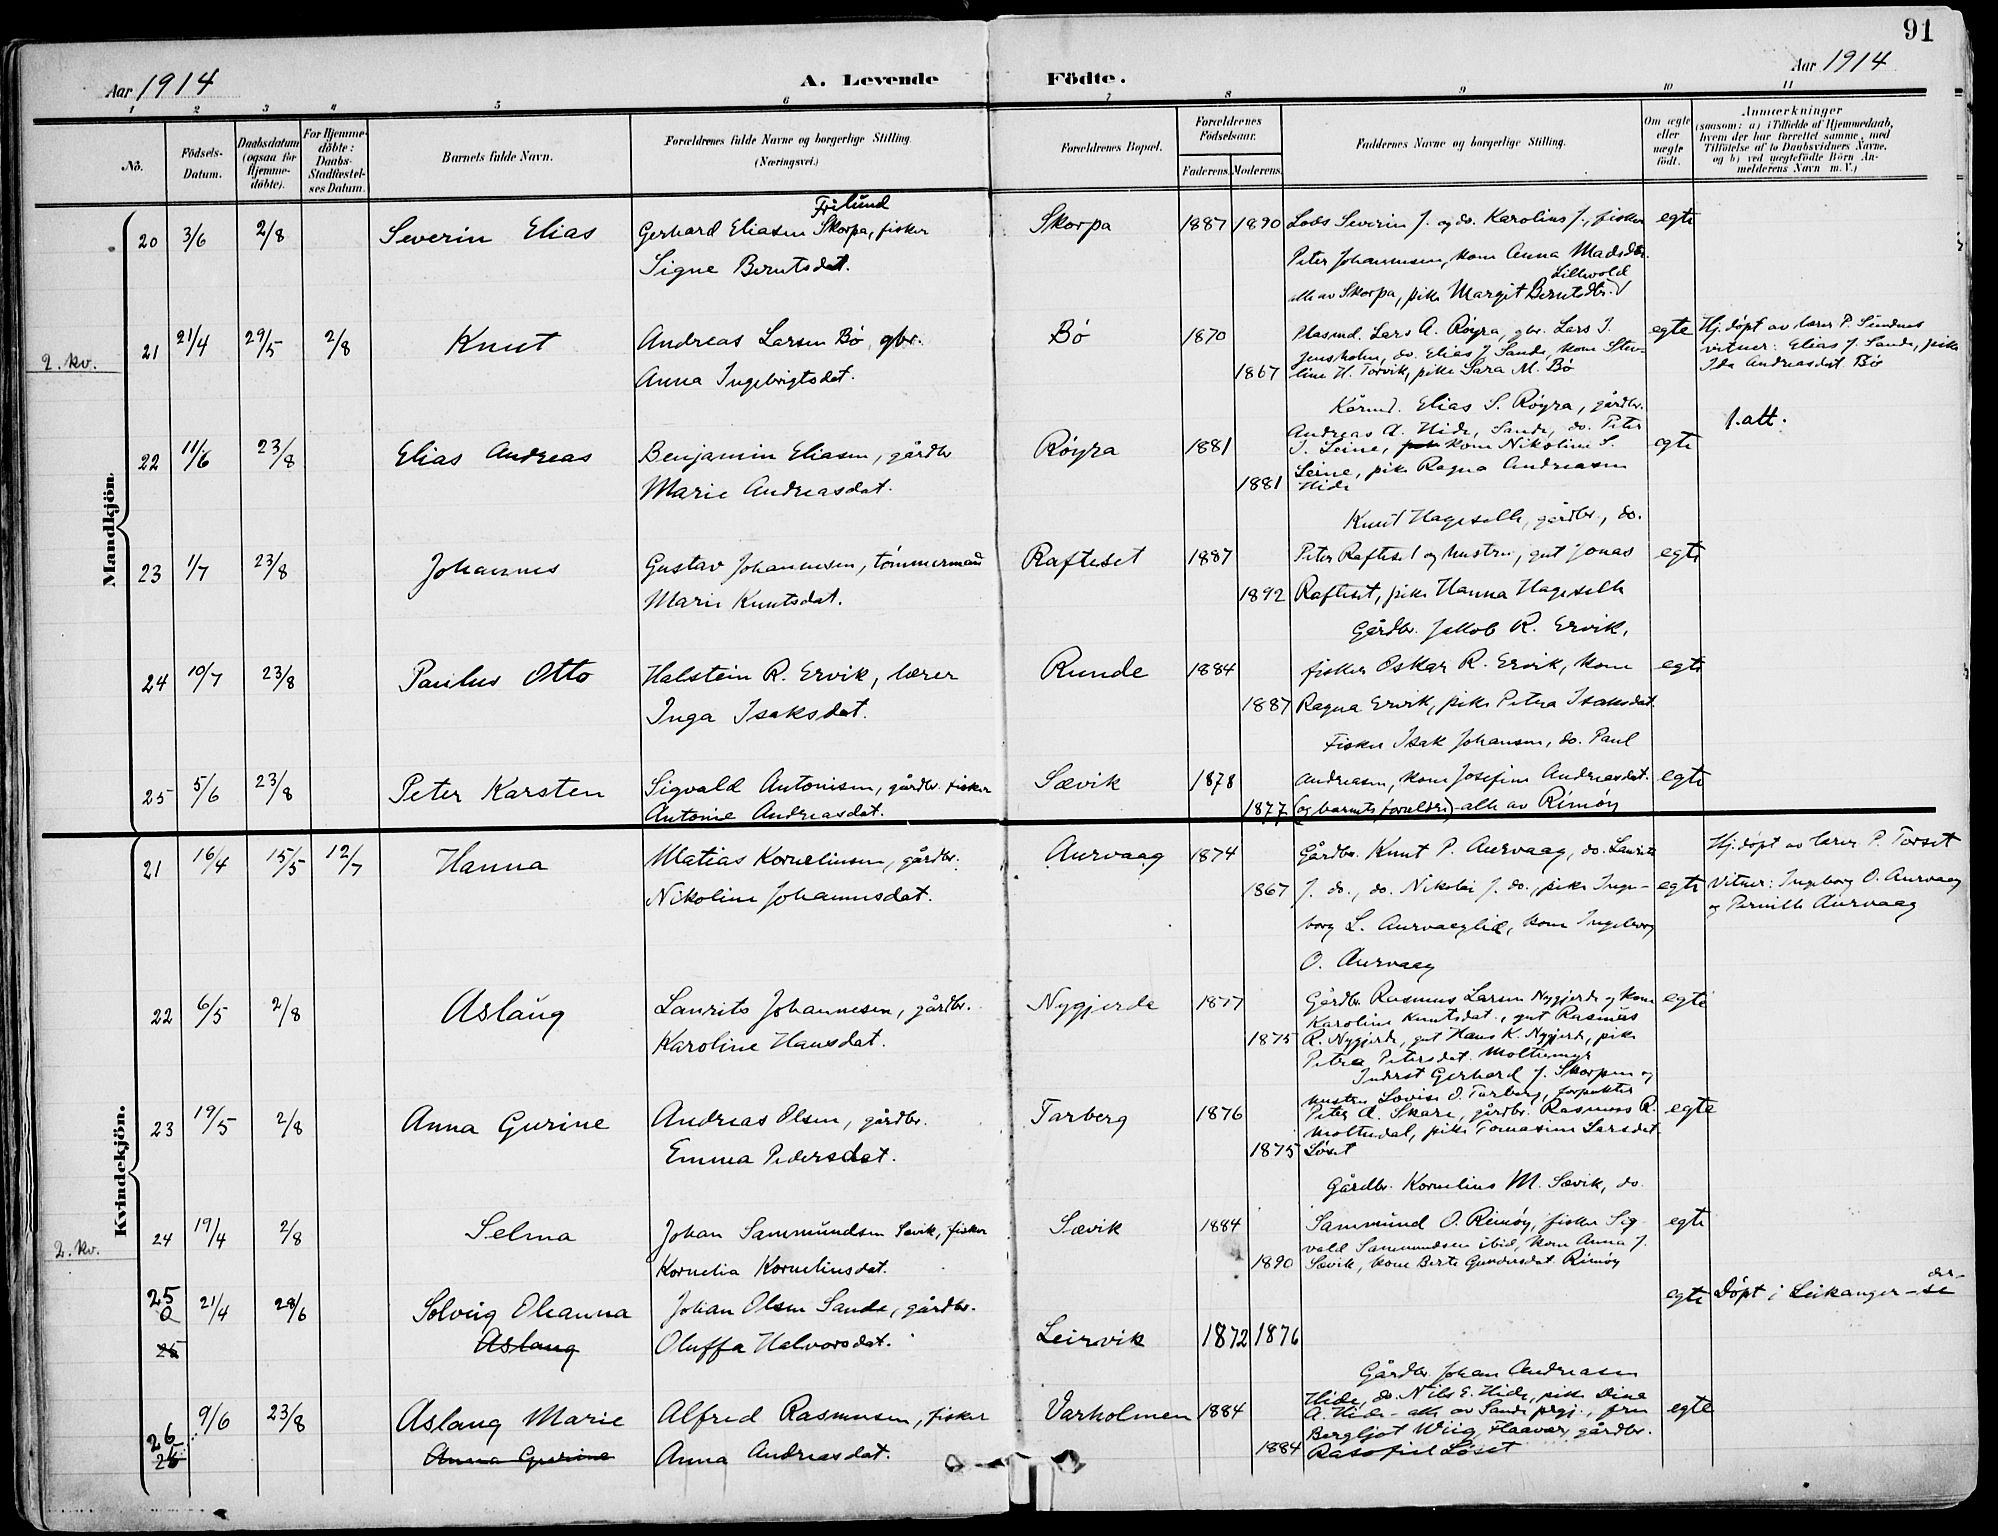 91
Aar 1914
A. Levende Födte.
Aar 1914
1 2 3 4 5 6 7 8 9 10 11
No.
Födsels-Datum.
Daabsdatum (ogsaa for Hjemmedöbte).
For Hjemmedöbte: Daabs-Stadfæstelses Datum.
Barnets fulde Navn.
Forældrenes fulde Navne og borgerlige Stilling. (Næringsvei.)
Forældrenes Bopæl.
Forældrenes Födselsaar.
Faderens. Moderens.
Faddernes Navne og borgerlige Stilling.
Om ægte eller uægte födt.
Anmærkninger
(saasom: a) i Tilfælde af Hjemmedaab, hvem der har forrettet samme, med Tilföielse af to Daabsvidners Navne, og b) ved uægtefödte Börn Anmelderens Navn m. V.)
Mandkjön.
Frilund
20 3/6 2/8 Severin Elias Gerhard Eliasen Skorpa, fisker Skorpa 1887 1890 Lods Severin J. og do. Karolius J., fisker egte
Signe Berntsdat. Peter Johannesen, kone Anna Madsdtr.
Lillevold
alle av Skorpa, pike Margit Berntsdtr.
2. kv.
21 21/4 29/5 2/8 Knut Andreas Larsen Bø, gbr. Bø 1870 Lars A. Røyra, gbr. Lars J. egte Hj.døpt av lærer P. Sundnes
Jensholm, do. Elias J Sande, kone vitner: Elias J. Sande, pike
Anna Ingebrigtsdat. 1867 H. Torvik, pike Sara M. Bø Ida Andreasdat Bø
Kårmd. Elias S. Røyra, gårdbr. 1.att.
22 11/6 23/8 Elias Andreas Benjamin Eliasen, gårdbr Røyra 1881 Andreas A. Hide, Sande, do. Peter egte
J. Leine, kone Nikoline S.
Marie Andreasdat. 1881 Leine, pike Ragna Andreasen
Hide
Knut Hageselle, gårdbr., do.
23 1/7 23/8 Johannes Gustav Johannesen, tømmermand Rafteset 1887 Peter Rafteset og hustru, gut Jonas egte
Marie Knutsdat. 1892 Rafteset, pike Hanna Hageselle
Gårdbr. Jakob R. Ervik,
24 10/7 23/8 Paulus Otto Halstein R. Ervik, lærer Runde 1884 fisker Oskar R. Ervik, kone egte
Inga Isaksdat. 1887 Ragna Ervik, pike Petra Isaksdat.
Fisker Isak Johansen, do. Paul
25 5/6 23/8 Peter Karsten Sigvald Antonisen, gårdbr. fisker Sævik 1878 Andreasen, kone Josefine Andreasdat. egte
Antonie Andreasdat. 1877 (og barnets forældre) - alle av Rimøy
Kvindekjön.
21 16/4 15/5 12/7 Hanna Matias Kornelinsen, gårdbr. Aurvaag 1874 Gårdbr. Knut P. Aurvaag, do. Laurits Hj.døpt av lærer P. Torset
Nikoline Johannesdat. 1867 J. do., do. Nikolai J. do., pike Inge- egte Vitner: Ingeborg O. Aurvaag
borg L. Aurvaaglid, kone Ingeborg og Pernille Aurvaag
O. Aurvaag
22 6/5 2/8 Aslaug Laurits Johannesen, gårdbr. Nygjerde 1877 Gårdbr. Rasmus Larsen Nygjerde og kone egte
Karoline Knutsdat., gut Rasmus
Karoline Hansdat. 1875 R. Nygjerde, gut Hans K. Nygjerde, pike
Petra Petersdat. Moltumyr
Inderst Gerhard J. Skorpen og
hustru Lovise O. Tarberg, forpakter
23 19/5 2/8 Anna Gurine Andreas Olsen, gårdbr. Tarberg 1876 Peter A. Skare, gårdbr. Rasmus R. egte
Moltudal, pike Tomasine Larsdat.
Emma Pedersdat. 1875 Løset
Gårdbr. Kornelius M. Sævik, do
24 19/4 2/8 Selma Johan Sammundsen Sævik, fisker Sævik 1884 Sammund O. Rimøy, fisker Sig- egte
2. kv.
vald Sammundsen ibid, kone Anna J.
Kornelia Korneliusdat. 1890 Sævik, kone Berte Gundersdat. Rimøy
25 a 21/4 28/6 Solveig Oleanna Johan Olsen Sande, gårdbr. egte Døpt i Leikanger
25 Aslaug Oluffa Halvorsdat. Leirvik 1872 1876
Gårdbr. Johan Andreasen
Hide, do. Nils E. Hide, pike Dina
26 9/6 23/8 Aslaug Marie Alfred Rasmusen, fisker Varholmen 1884 A. Hide - alle av Sande prgj., fru egte
Bergljot Wiig, Haavær, gårdbr.
25 Anna Gurine Anna Andreasdat. 1884 Løset